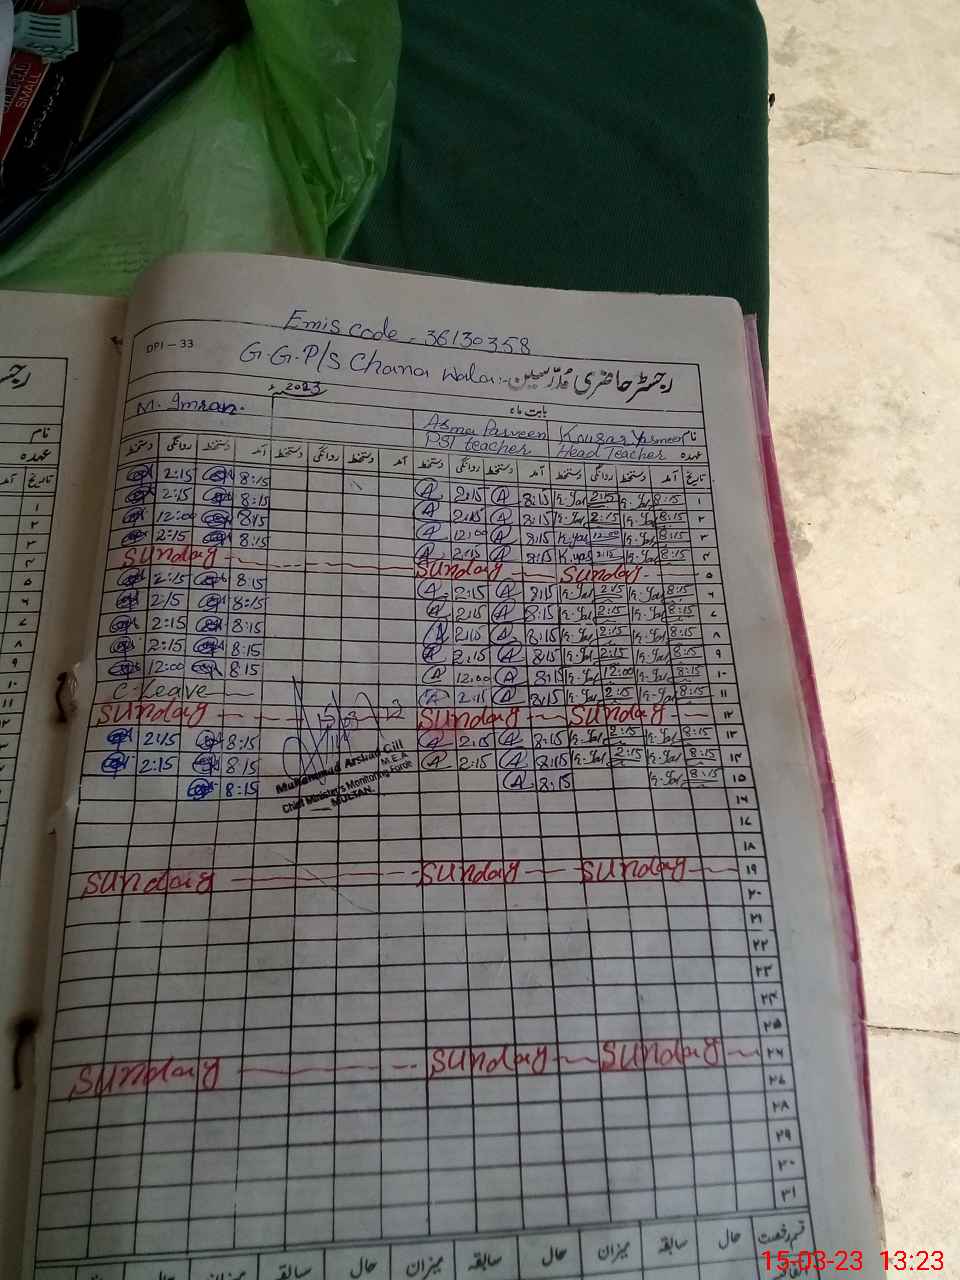 SMALL
Emis code - 36130358
DPI - 33
G.G.P/S Chana Wala:- رجسٹر حاضری مدرسین
2023ء
بابت ماہ
M. Imran. Asma Parveen Kousar Yasmeen نام
PST teacher Head Teacher عہدہ
دستخط روانگی دستخط آمد دستخط روانگی دستخط آمد دستخط روانگی دستخط آمد دستخط روانگی دستخط آمد تاریخ
2:15 8:15 A 2:15 A 8:15 K.Yas 2:15 K.Yas 8:15 ۱
2:15 8:15 A 2:15 A 8:15 K.Yas 2:15 K.Yas 8:15 ۲
12:00 8:15 A 12:00 A 8:15 K.Yas 12:00 K.Yas 8:15 ۳
2:15 8:15 A 2:15 A 8:15 K.Yas 2:15 K.Yas 8:15 ۴
Sunday Sunday Sunday ۵
2:15 8:15 A 2:15 A 8:15 K.Yas 2:15 K.Yas 8:15 ۶
2:15 8:15 A 2:15 A 8:15 K.Yas 2:15 K.Yas 8:15 ۷
2:15 8:15 A 2:15 A 8:15 K.Yas 2:15 K.Yas 8:15 ۸
2:15 8:15 A 2:15 A 8:15 K.Yas 2:15 K.Yas 8:15 ۹
12:00 8:15 A 12:00 A 8:15 K.Yas 12:00 K.Yas 8:15 ۱۰
C-Leave A 2:15 A 8:15 K.Yas 2:15 K.Yas 8:15 ۱۱
Sunday Sunday Sunday ۱۲
2:15 8:15 A 2:15 A 8:15 K.Yas 2:15 K.Yas 8:15 ۱۳
2:15 8:15 A 2:15 A 8:15 K.Yas 2:15 K.Yas 8:15 ۱۴
8:15 A 8:15 K.Yas 8:15 ۱۵
Muhammad Arshad Gill
M.E.A
Chief Minister's Monitoring Force
MULTAN.
۱۶
۱۷
۱۸
Sunday Sunday Sunday ۱۹
۲۰
۲۱
۲۲
۲۳
۲۴
۲۵
Sunday Sunday Sunday ۲۶
۲۷
۲۸
۲۹
۳۰
۳۱
حال سابقہ میزان حال سابقہ میزان حال سابقہ میزان حال قسم رخصت
15-03-23 13:23